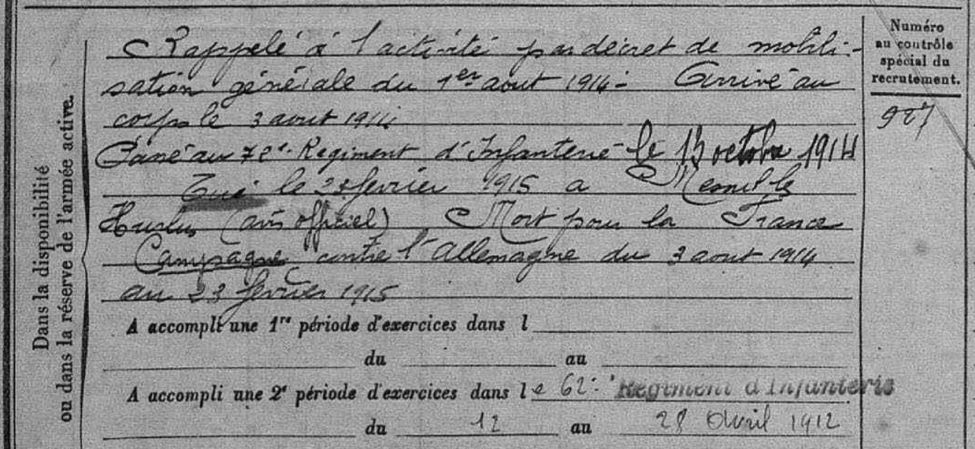 Numéro
au contrôle
spécial du
recrutement.
927
Dans la disponibilité
ou dans la réserve de l'armée active.
Rappelé à l'activité par décret de mobili-
sation générale du 1er aout 1914 - Arrivé au
corps le 3 aout 1914
Passé au 72e Regiment d'Infanterie le 15 octobre 1914
Tué le 23 fevrier 1915 a Mesnil les
Hurlus (avis officiel) Mort pour la France
Campagne contre l'Allemagne du 3 aout 1914
au 23 fevrier 1915
A accompli une 1re période d'exercices dans l
du au
A accompli une 2e période d'exercices dans le 62e Régiment d'Infanterie
du 12 au 28 Avril 1912